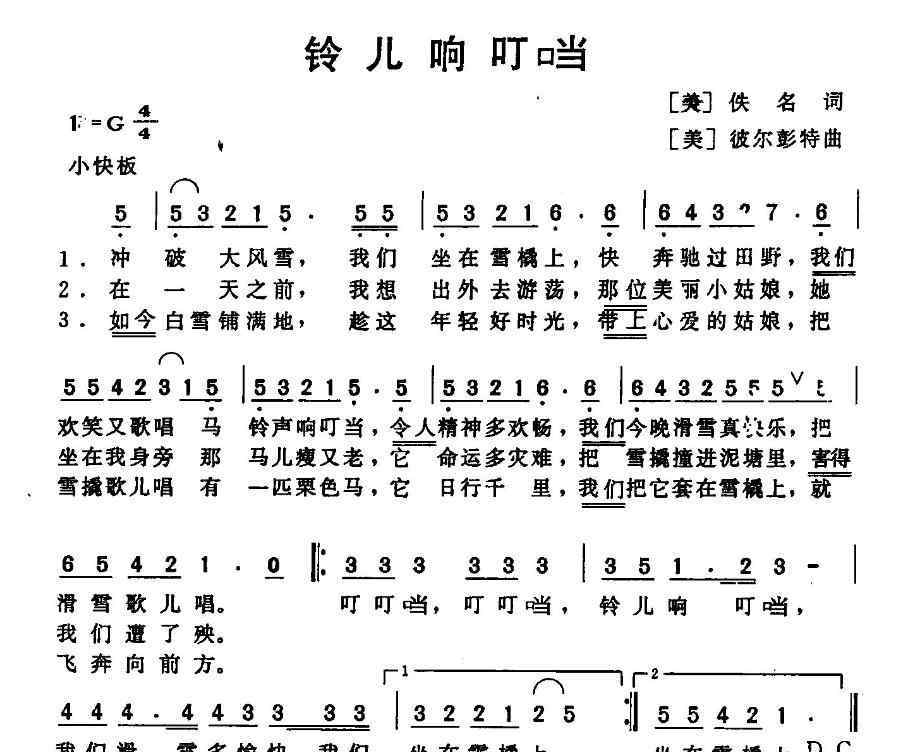 铃儿响叮当
[美] 佚名 词
1=G 4/4
[美] 彼尔彭特曲
小快板
5 | 5 3 2 1 5 . 5 5 | 5 3 2 1 6 . 6 | 6 4 3 2 7 . 6 |
1. 冲 破 大风雪, 我们 坐在雪橇上, 快 奔驰过田野, 我们
2. 在 一 天之前, 我想 出外去游荡, 那位美丽小姑娘, 她
3. 如今白雪铺满地, 趁这 年轻好时光, 带上心爱的姑娘, 把
5 5 4 2 3 1 5 | 5 3 2 1 5 . 5 | 5 3 2 1 6 . 6 | 6 4 3 2 5 5 5 5 ∨ 5 |
欢笑又歌唱 马 铃声响叮当, 令人精神多欢畅, 我们今晚滑雪真快乐, 把
坐在我身旁 那 马儿瘦又老, 它 命运多灾难, 把 雪撬撞进泥塘里, 害得
雪撬歌儿唱 有 一匹栗色马, 它 日行千里, 我们把它套在雪橇上, 就
6 5 4 2 1 . 0 ‖: 3 3 3 3 3 3 | 3 5 1 . 2 3 - |
滑雪歌儿唱。 叮叮当, 叮叮当, 铃儿响 叮当,
我们遭了殃。
飞奔向前方。
1 2
4 4 4 . 4 4 3 3 3 3 | 3 2 2 1 2 5 :‖ 5 5 4 2 1 . ‖
我们滑 雪多愉快 我们 坐在雪橇上 坐在雪橇上 D.C.